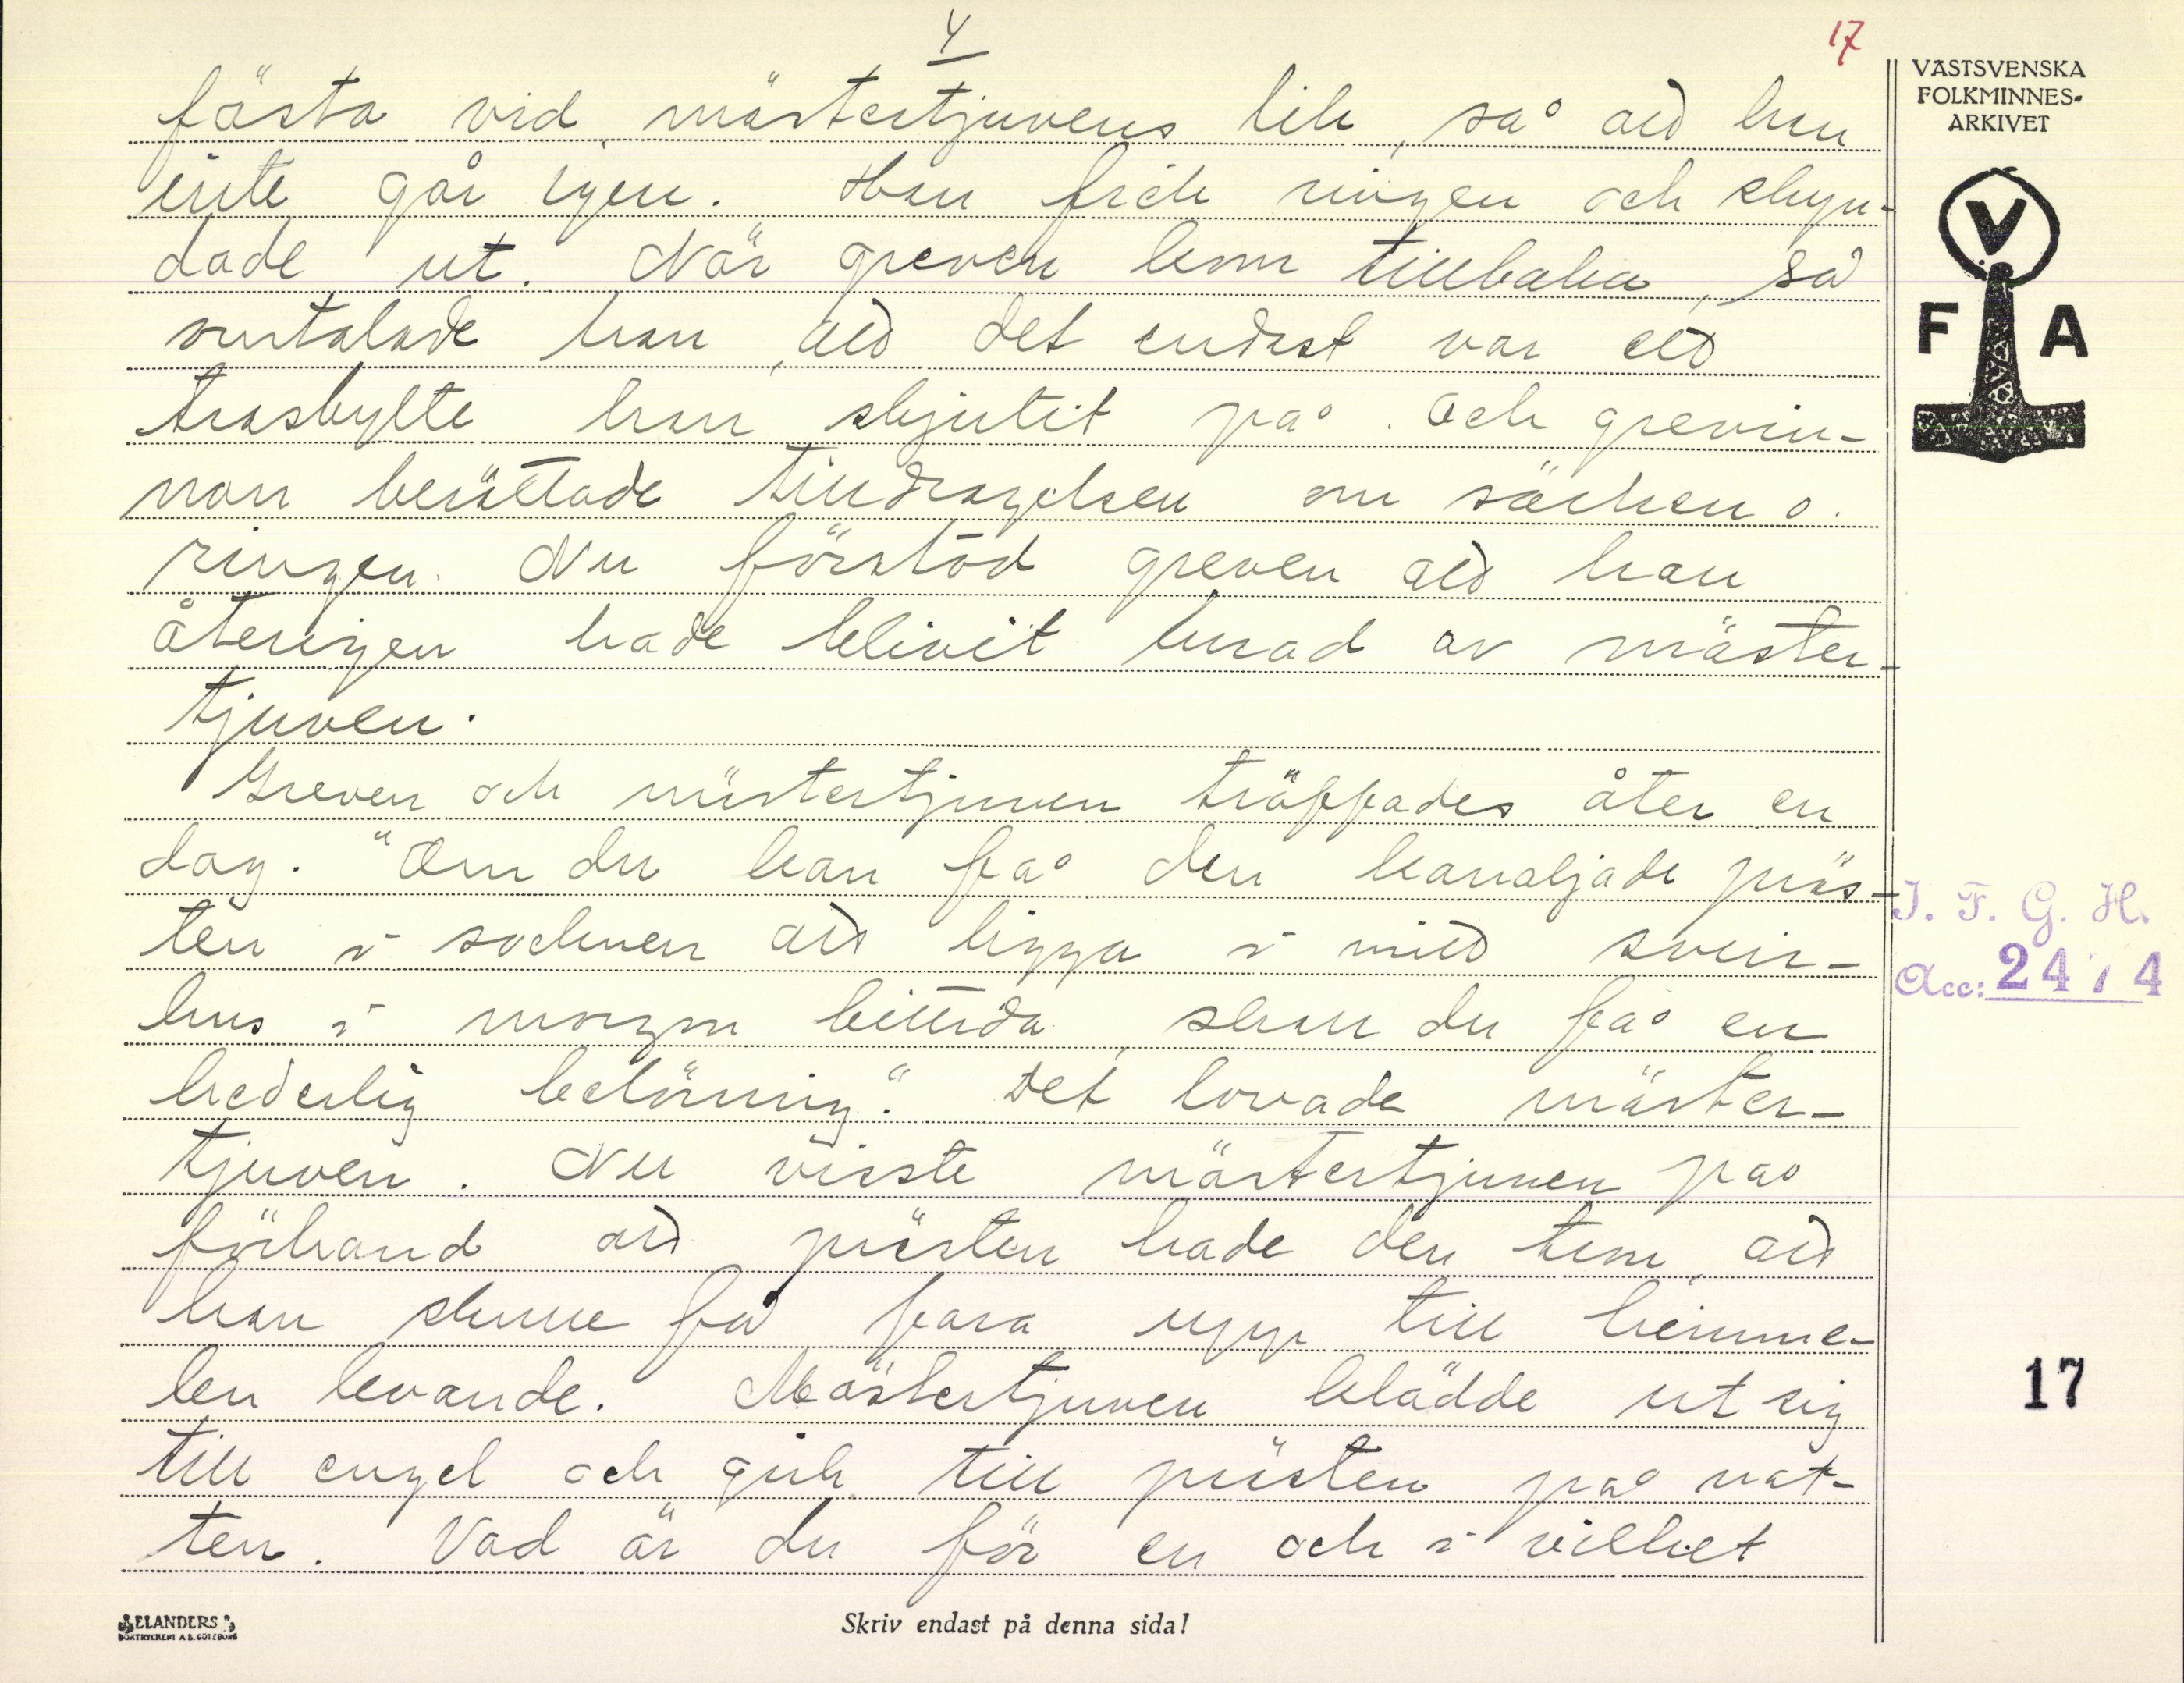 4
17
VÄSTSVENSKA
FOLKMINNES-
ARKIVET
V
F A
fästa vid mästertjuvens lik, så att han
inte går igen. Han fick ringen och skyn-
dade ut. När greven kom tillbaka, så
omtalade han, att det endast var ett
trasbylte han skjutit på. Och grevin-
nan berättade tilldragelsen om säcken o.
ringen. Nu förstod greven att han
återigen hade blivit lurad av mäster-
tjuven.
Greven och mästertjuven träffades åter en
dag. "Om du kan få den kanaljade präs-
ten i socknen att ligga i mitt svin-
hus i morgon bittida, skall du få en
hederlig belöning." Det lovade mäster-
tjuven. Nu visste mästertjuven på
förhand att prästen hade den tron, att
han skulle få fara upp till himme-
len levande. Mästertjuven klädde ut sig
till engel och gick till prästen på nat-
ten. Vad är du för en och i vilket
I. F. G. H.
Acc: 2474
17
ELANDERS
BOKTRYCKERI A.B. GÖTEBORG
Skriv endast på denna sida!